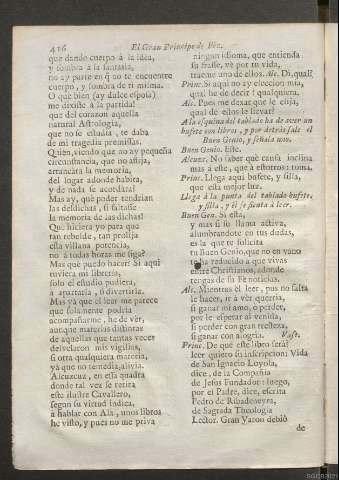 416 El Gran Principe de Fez.
que dando cuerpo à la idea,
y sombra à la fantasia,
no ay parte en q̃ no te encuentre
cuerpo, y sombra de ti misma.
O què bien (ay dulce esposa)
me dixiste à la partida!
que del corazon aquella
natural Astrologia,
que no se estudia, te daba
de mi tragedia premissas.
Quien, viendo que no ay pequeña
circunstancia, que no aflija,
arrancára la memoria,
del lugar adonde habita,
y de nada se acordára!
Mas ay, què poder tendrian
las desdichas, si faltasse
la memoria de las dichas!
Què hiciera yo para que
tan rebelde, tan prolija
esta villana potencia,
no à todas horas me siga?
Mas què puedo hacer? Si aqui
tuviera mi libreria,
solo el estudio pudiera,
à apartarla, ò divertirla.
Mas yà que el leer me parece
que solamente podria
acompañarme, he de vèr,
aunque materias distintas
de aquellas que tantas veces
desvelaron mis vigilias,
si otra qualquiera materia,
yà que no remedia, alivia.
Alcuzcuz, en essa quadra
donde tal vez se retira
este ilustre Cavallero,
segun su virtud indica,
à hablar con Alà, unos libros
he visto, y pues no me priva
ningun idioma, que entienda
su frasse, vè por tu vida,
traeme uno de ellos. Alc. Di, qual?
Princ. Si aqui no ay eleccion mia,
què he de decir? qualquiera.
Alc. Pues me dexas que le elija,
qual de ellos le llevar?
A la esquina del tablado ha de aver un
bufete con libros, y por detràs sale el
Buen Genio, y señala uno.
Buen Genio. Este.
Alcuzc. No saber què causa inclina
mas à este, que à estotros: toma.
Princ. Llega aqui bufete, y silla,
que esta mejor luz.
Llega à la punta del tablado bufete,
y silla, y èl se sienta à leer.
Buen Gen. Si està,
y mas si su llama activa,
alumbrandote en tus dudas,
es la que te solicita
tu Buen Genio, que no en vano
reducido à que vivas
entre Christianos, adonde
tengas de su Fè noticias.
Alc. Mientras èl leer, pus no falta
le hacer, ir à vèr querria,
si ganar mi amo, ò perder,
por le esperar al venida,
si perder con gran tresteza,
si ganar con alogria. Vase.
Princ. De què este libro serà?
leer quiero su inscripcion: Vida
de San Ignacio Loyola,
dice, de la Compañia
de Jesus Fundador: luego,
por el Padre, dice, escrita
Pedro de Ribadeneyra,
de Sagrada Theologia
Lector. Gran Varon debiò
de